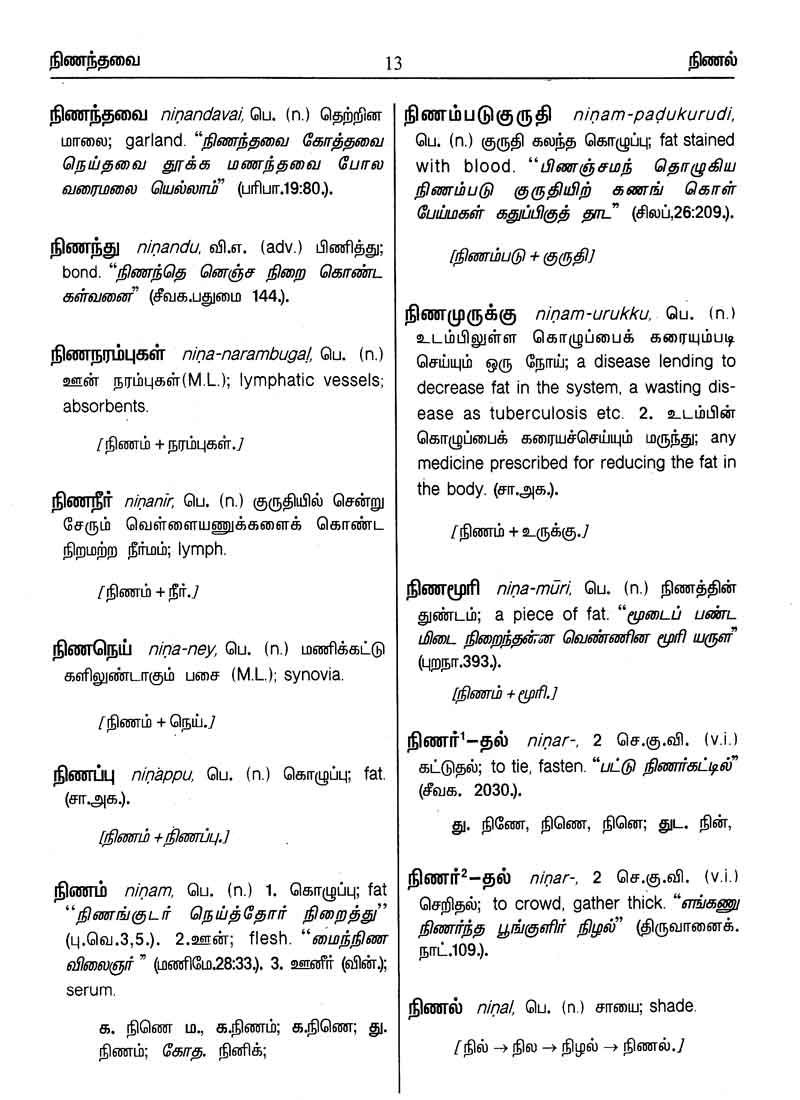 நிணந்தவை
13
நிணல்
நிணந்தவை niṇandavai, பெ. (n.) தெற்றின
மாலை; garland. “நிணந்தவை கோத்தவை
நெய்தவை தூக்க மணந்தவை போல
வரைமலை யெல்லாம்” (பரிபா.19:80.).
நிணந்து niṇandu, வி.எ. (adv.) பிணித்து;
bond. “நிணந்தெ னெஞ்ச நிறை கொண்ட
கள்வனை” (சீவக.பதுமை 144.).
நிணநரம்புகள் niṇa-narambugaḷ, பெ. (n.)
ஊன் நரம்புகள்(M.L.); lymphatic vessels;
absorbents.
[நிணம் + நரம்புகள்.]
நிணநீர் niṇanīr, பெ. (n.) குருதியில் சென்று
சேரும் வெள்ளையணுக்களைக் கொண்ட
நிறமற்ற நீர்மம்; lymph.
[நிணம் + நீர்.]
நிணநெய் niṇa-ney, பெ. (n.) மணிக்கட்டு
களிலுண்டாகும் பசை (M.L.); synovia.
[நிணம் + நெய்.]
நிணப்பு niṇappu, பெ. (n.) கொழுப்பு; fat.
(சா.அக.).
[நிணம் + நிணப்பு.]
நிணம் niṇam, பெ. (n.) 1. கொழுப்பு; fat
“நிணங்குடர் நெய்த்தோர் நிறைத்து”
(பு.வெ.3,5.). 2.ஊன்; flesh. “மைந்நிண
விலைஞர் ” (மணிமே.28:33.). 3. ஊனீர் (வின்.);
serum.
க. நிணெ ம., க.நிணம்; க.நிணெ; து.
நிணம்; கோத. நினிக்;
நிணம்படுகுருதி niṇam-paḍukurudi,
பெ. (n.) குருதி கலந்த கொழுப்பு; fat stained
with blood. “பிணஞ்சமந் தொழுகிய
நிணம்படு குருதியிற் கணங் கொள்
பேய்மகள் கதுப்பிகுத் தாட” (சிலப்,26:209.).
[நிணம்படு + குருதி]
நிணமுருக்கு niṇam-urukku, பெ. (n.)
உடம்பிலுள்ள கொழுப்பைக் கரையும்படி
செய்யும் ஒரு நோய்; a disease lending to
decrease fat in the system, a wasting dis-
ease as tuberculosis etc. 2. உடம்பின்
கொழுப்பைக் கரையச்செய்யும் மருந்து; any
medicine prescribed for reducing the fat in
the body. (சா.அக.).
[நிணம் + உருக்கு.]
நிணமூரி niṇa-mūri, பெ. (n.) நிணத்தின்
துண்டம்; a piece of fat. “மூடைப் பண்ட
மிடை நிறைந்தன்ன வெண்ணின மூரி யருள”
(புறநா.393.).
[நிணம் + மூரி.]
நிணர்¹–தல் niṇar-, 2 செ.கு.வி. (v.i.)
கட்டுதல்; to tie, fasten. “பட்டு நிணர்கட்டில்”
(சீவக. 2030.).
து. நிணே, நிணெ, நினெ; துட. நின்,
நிணர்²–தல் niṇar-, 2 செ.கு.வி. (v.i.)
செறிதல்; to crowd, gather thick. “எங்கணு
நிணர்ந்த பூங்குளிர் நிழல்” (திருவானைக்.
நாட்.109.).
நிணல் niṇal, பெ. (n.) சாயை; shade.
[நில் → நில → நிழல் → நிணல்.]